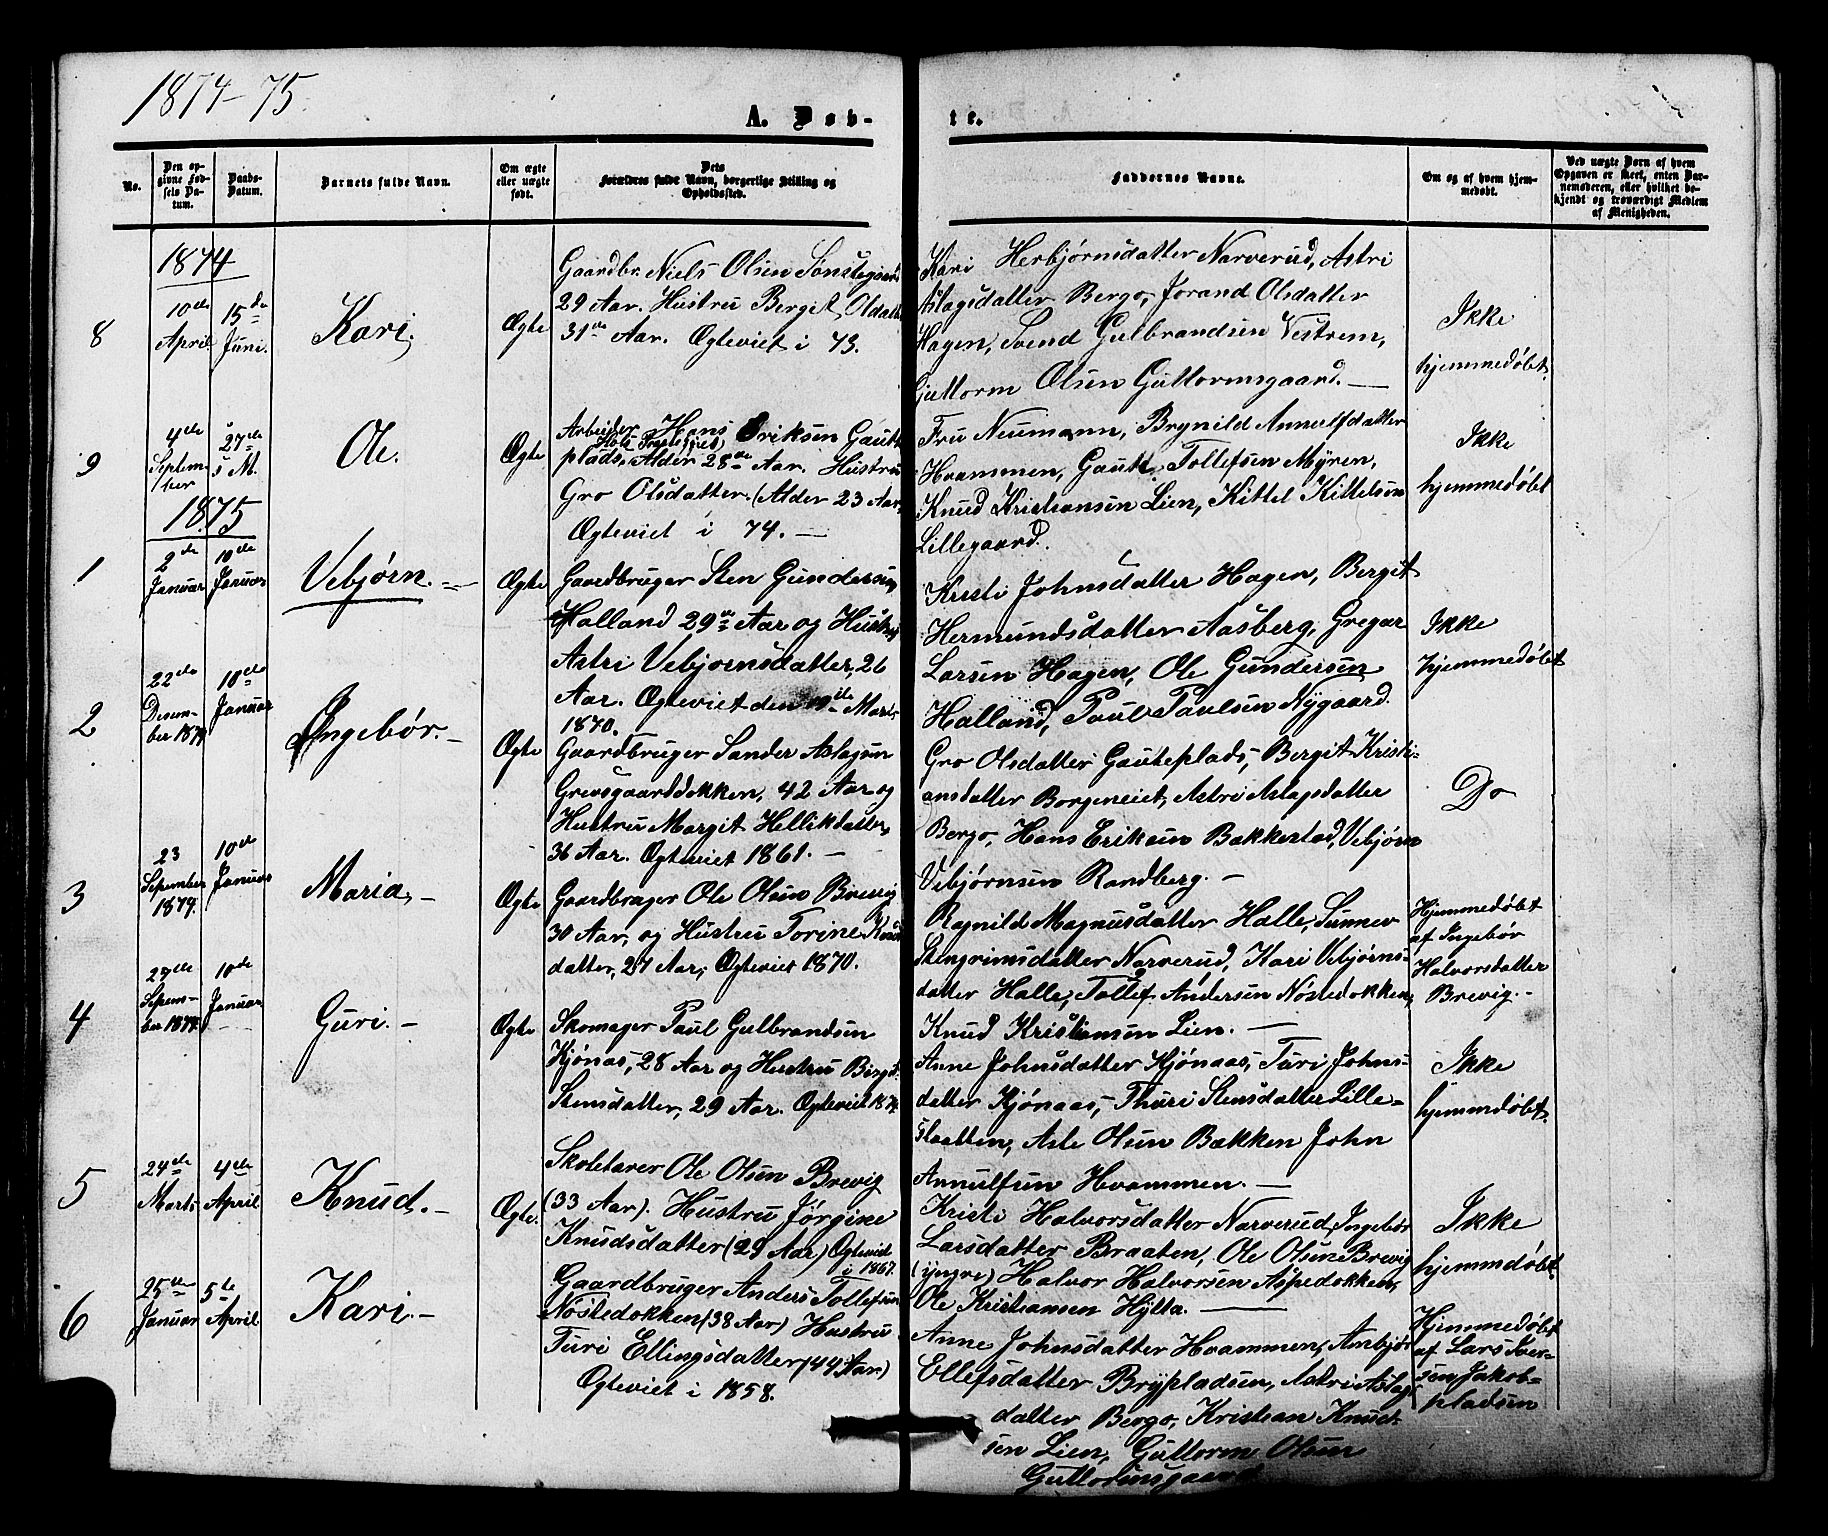 1874-75.
A. Døb-
te.
No.
Den op-
givne Fød-
sels Da-
tum.
Daabs-
Datum.
Barnets fulde Navn.
Om ægte
eller uægte
født.
Dets
Forældres fulde Navn, borgerlige Stilling og
Opholdssted.
Faddernes Navne.
Om og af hvem hjem-
medøbt.
Ved uægte Børn af hvem
Opgaven er skeet, enten Bar-
nemoderen, eller hvilket be-
kjendt og troværdigt Medlem
af Menigheden.
1874
8
10de
April
15de
Juni.
Kari.
Ægte
Gaardbr. Niels Olsen Sønstegaard
29 Aar. Hustru Bergit Olsdatt
31te Aar. Ægteviet i 73.
Kari Herbjørnsdatter Narverud, Astri
Aslagsdatter Bergo, Jorand Olsdatter
Hagen, Svend Gulbrandsen Vestrem,
Guttorm Olsen Guttormsgaard. —
Ikke
hjemmedøbt.
9
4de
Septem-
ber
27de
s. M.
Ole.
Ægte
Arbeider Hans Eriksen Gaute-
plads, Alder 28de Aar. Hustru
Gro Olsdatter. (Alder 23 Aar,
Ægteviet i 74. —
Fru Neumann, Brynild Annulfdatter
Hvammen, Gaute Tollefsen Myren,
Knud Kristiansen Lien, Kittel Kittelsen
Lillegaard.
Ikke
hjemmedøbt
1875
1
2de
Januar
10de
Januar
Vebjørn. —
Ægte
Gaardbruger Sten Gundersen
Halland 29de Aar og Hustru
Astri Vebjørnsdatter, 26
Aar. Ægteviet den 19de Marts
1870.
Kristi Johnsdatter Hagen, Bergit
Hermundsdatter Aasberg, Gregar
Larsen Hagen, Ole Gundersen
Halland, Paul Paulsen Nygaard.
Ikke
hjemmedøbt
2
22de
Desem-
ber 1874
10de
Januar
Ingebør. —
Ægte
Gaardbruger Sander Aslagsen
Grevsgaarddokken, 42 Aar og
Hustru Margit Hellikdatter,
36 Aar. Ægteviet 1861. —
Gro Olsdatter Gauteplads, Bergit Kristi-
ansdatter Borgeneiet, Astri Aslagsdatter
Bergo, Hans Eriksen Bakkestad, Vebjørn
Vebjørnsen Randberg. —
Do
3
23
September
1874.
10de
Januar
Maria, —
Ægte
Gaardbruger Ole Olsen Brevig
30 Aar, og Hustru Torine Knud
datter, 27 Aar, Ægteviet 1870.
Ragnild Magnusdatter Halle, Sunnev
Stengrimsdatter Narverud, Kari Vebjørns-
datter Halle, Tollef Andersen Nøstedokken,
Knud Kristiansen Lien. —
Hjemmedøbt
af Ingebør
Halvorsdatter
Brevig. —
4
Septem-
ber 1874.
10de
Januar
Guri. —
Ægte
Skomager Paul Gulbrandsen
Kjønas, 28 Aar og Hustru Birgit
Stensdatter, 29 Aar. Ægteviet 1874
Anne Johnsdatter Kjønaas, Turi Johns-
datter Kjønaas, Thuri Stensdatter Lille-
slaatten, Asle Olsen Bækken John
Annulfsen Hvammen. —
Ikke
hjemmedøbt.
5
24de
Marts
4de
April
Knud. —
Ægte.
Skolelærer Ole Olsen Brevig
(33 Aar). Hustru Jørgine
Knudsdatter (29 Aar) Ægteviet
i 1867.
Kristi Halvorsdatter Narverud, Ingebør
Larsdatter Braaten, Ole Olsen Brevig
(yngre) Halvor Halvorsen Aspedokken,
Ole Kristiansen Hylta. —
Ikke
hjemmedøbt.
6
25de
Januar
5te
April
Kari. —
Gaardbruger Anders Tollefsen
Nøstedokken (38 Aar) Hustru
Turi Ellingsdatter (44 Aar)
Ægteviet i 1858.
Anne Johnsdatter Hvammen, Ambjør
Ellefsdatter Brypladsen, Astri Aslags
datter Bergo, Kristian Knud-
sen Lien, Guttorm Olsen
Guttormsgaard
Hjemmedøbt
af Lars Iver-
sen Jakob-
pladsen